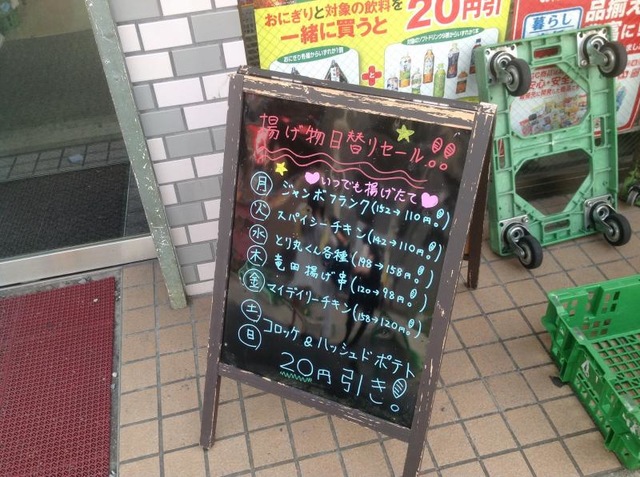 おにぎりと対象の飲料を
一緒に買うと
20円引
暮らし
品揃え
揚げ物日替りセール!!
いつでも揚げたて
月 ジャンボフランク(152→110円)
火 スパイシーチキン(142→110円)
水 とり丸くん各種(198→158円)
木 竜田揚げ串(120→98円)
金 マイデイリーチキン(158→120円)
土 コロッケ&ハッシュドポテト
日 20円引き!